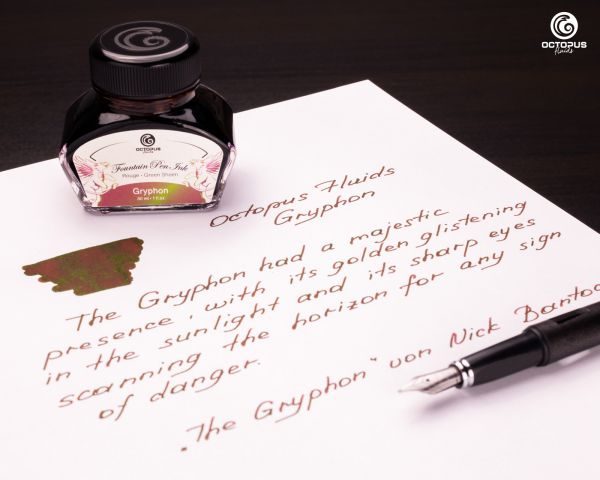 OCTOPUS
fluids
OCTOPUS
fluids
Fountain Pen Ink
Rouge · Green Sheen
Gryphon
30 ml · 1 fl.oz
Octopus Fluids
Gryphon
The Gryphon had a majestic
presence, with its golden glistening
in the sunlight and its sharp eyes
scanning the horizon for any sign
of danger.
„The Gryphon" von Nick Bantoc